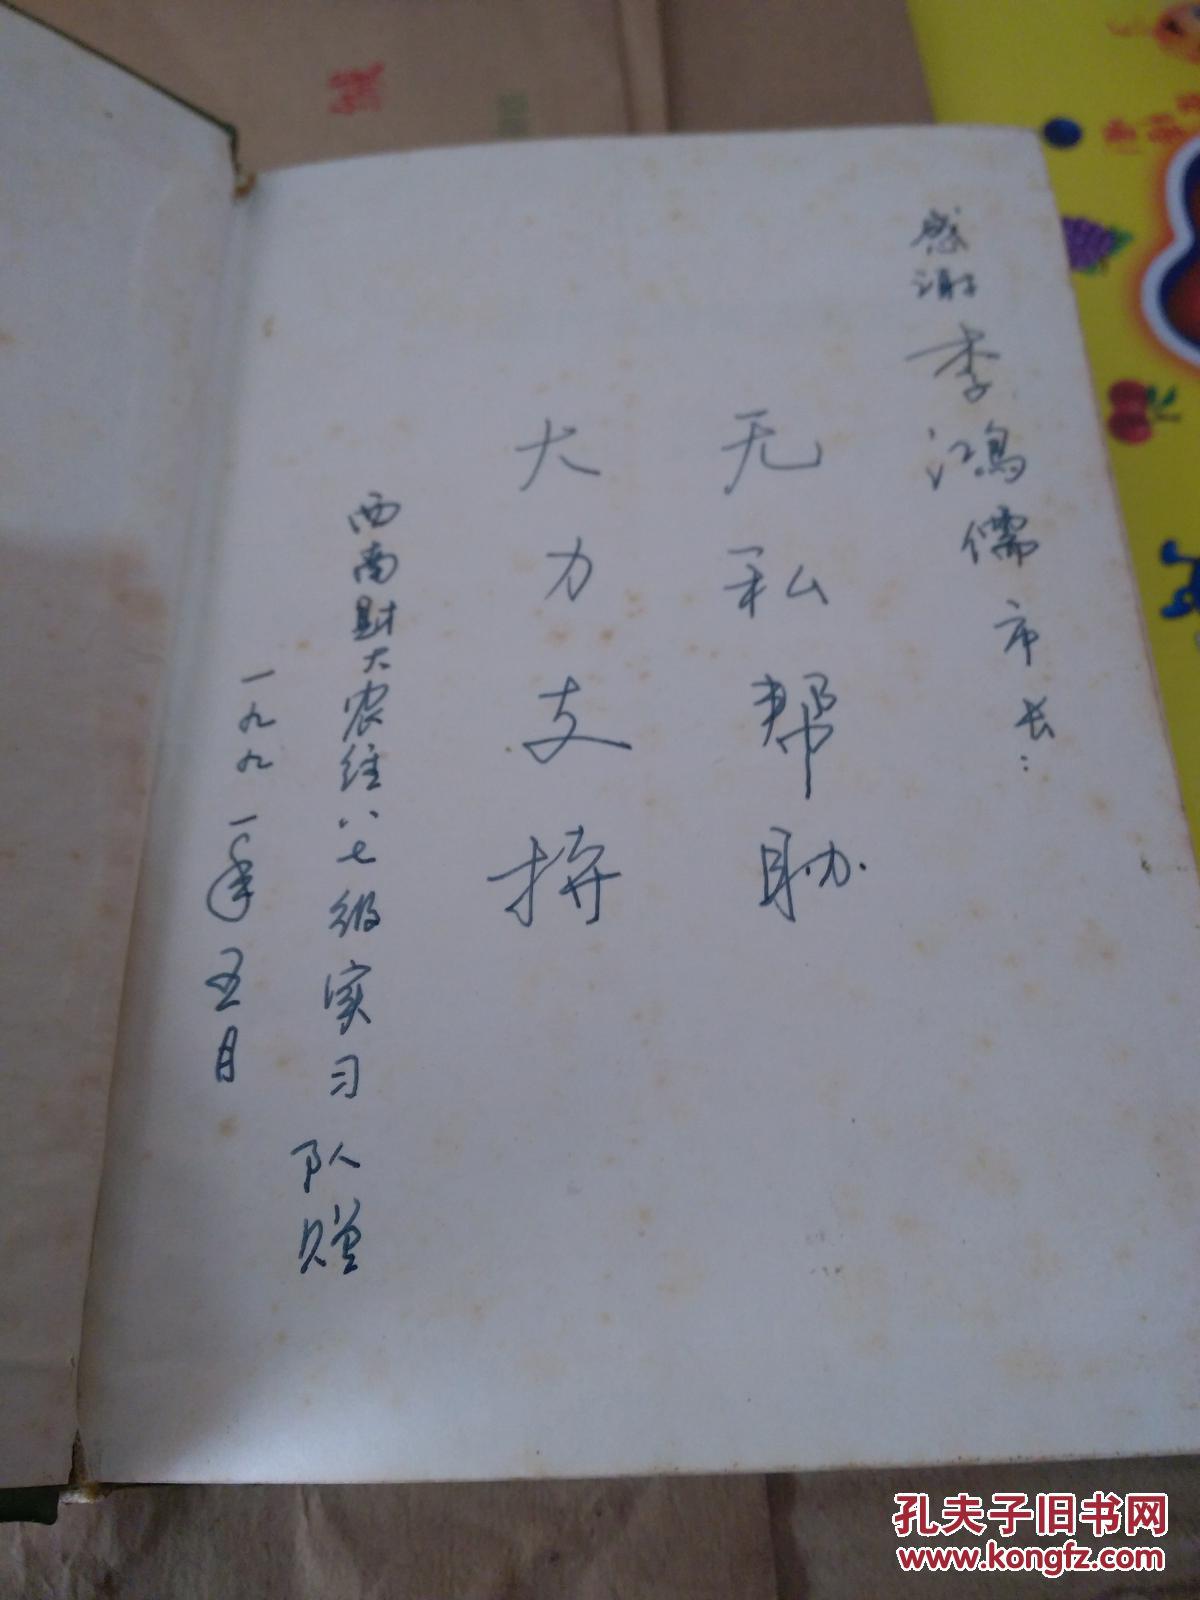 感谢李鸿儒市长：
无私帮助
大力支持
西南财大农经八七级实习队赠
一九九一年五月
孔夫子旧书网
www.kongfz.com